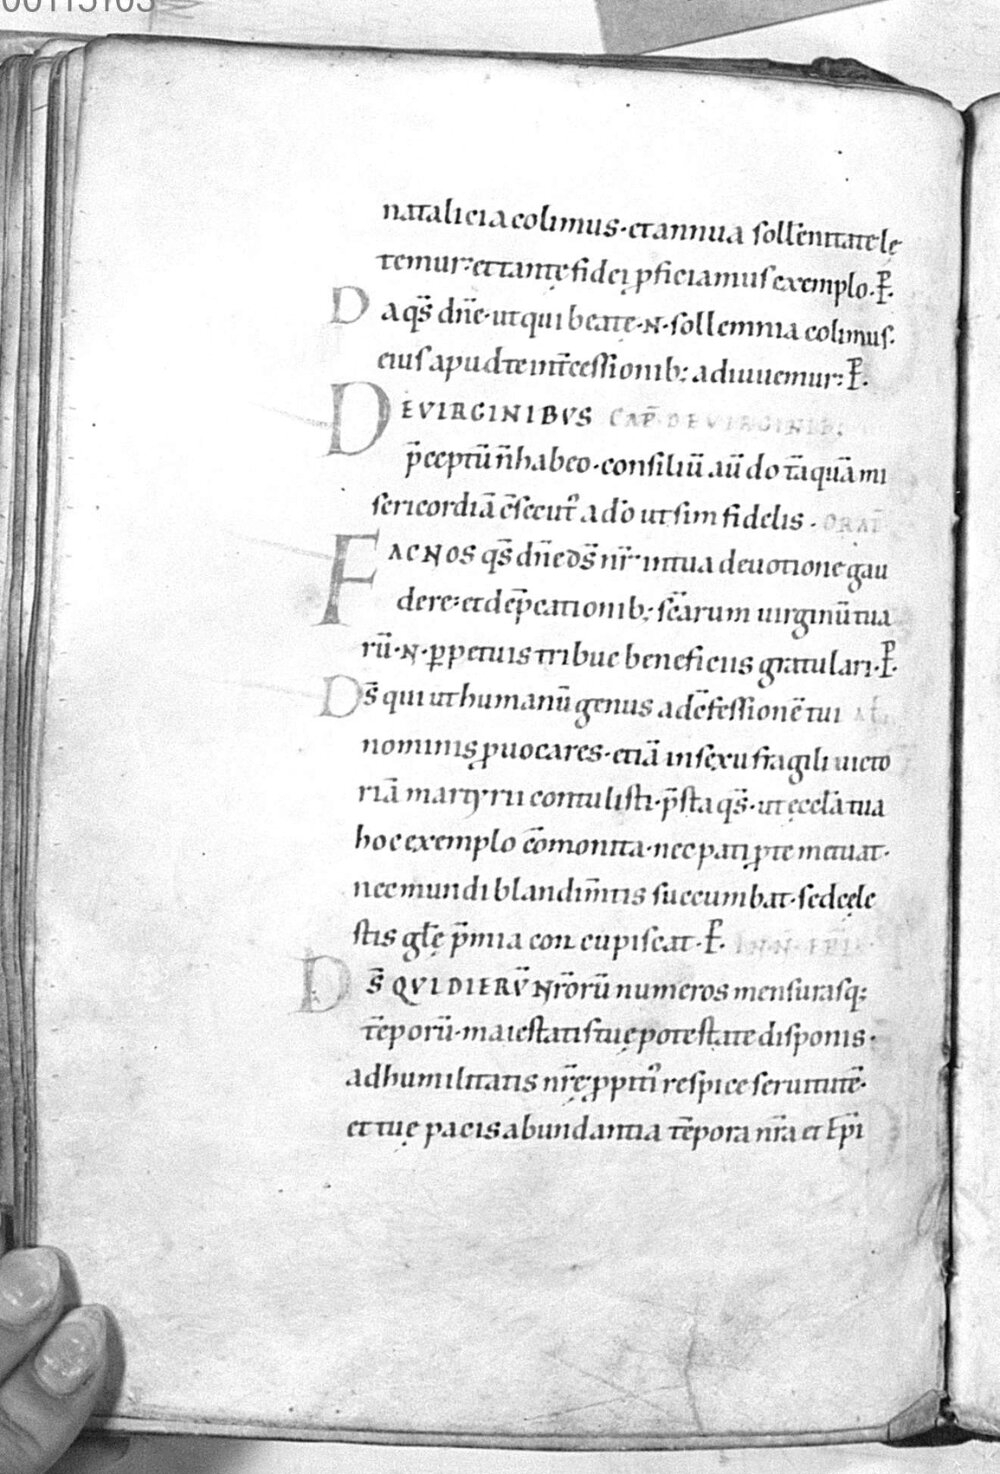 00115103
natalicia colimus· et annua soll̄enitate lę
temur· et tantę fidei ꝓficiamus exemplo· P̄·
D a q̄s dn̄e· ut qui beatę ·N· sollemnia colimus·
eius apud te int̄cessionib; adiuuemur· P̄·
DE VIRGINIBVS CAP̄ DE VIRGINIB;
p̄ceptū n̄ habeo· consiliū aū do tāquā mi
sericordiā c̄secut᷒ a dō ut sim fidelis· ORAT̄
FAC NOS q̄s dn̄e ds̄ nr̄ in tua deuotione gau
dere· et dep̄cationib; sc̄arum uirginū tua
rū ·N· ꝑpetuis tribue beneficiis gratulari· P̄·
Ds̄ qui ut humanū genus ad c̄fessionē tui AL̄
nominis ꝓuocares· etiā in sexu fragili uicto
riā martyrii contulisti· p̄sta q̄s· ut ęccl̄a tua
hoc exemplo cōmonita· nec pati ꝓ te metuat·
nec mundi blandim̄tis succumbat· sed cęle
stis gl̄ę p̄mia concupiscat· P̄·
Ds̄ QVI DIERV̄ Nr̄orū numeros mensurasq;
tēporū· maiestatis tuę potestate disponis·
ad humilitatis nr̄ę ꝓpitī respice seruitutē·
et tuę pacis abundantia tēpora nr̄a et Ep̄i